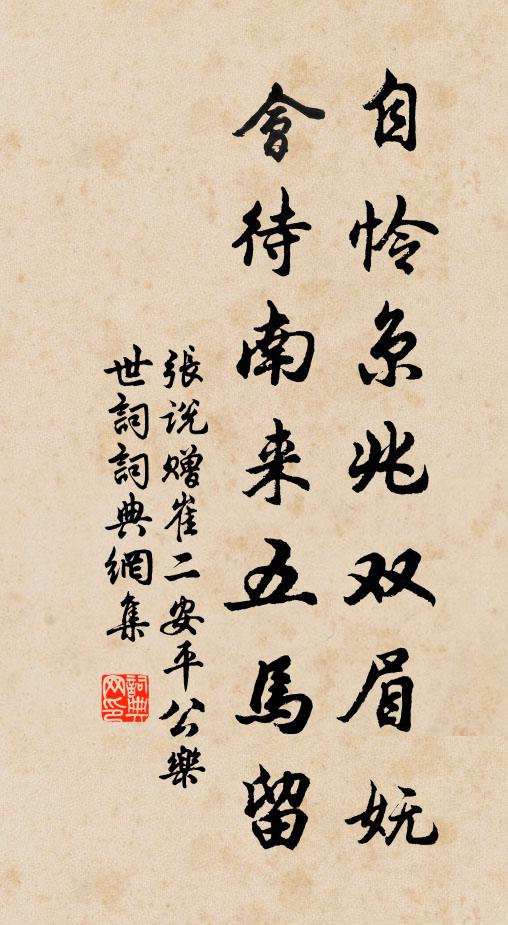 自怜京兆双眉妩
會待南来五馬留
張说赠崔二安平公樂
世詞詞典網集
詞典网印